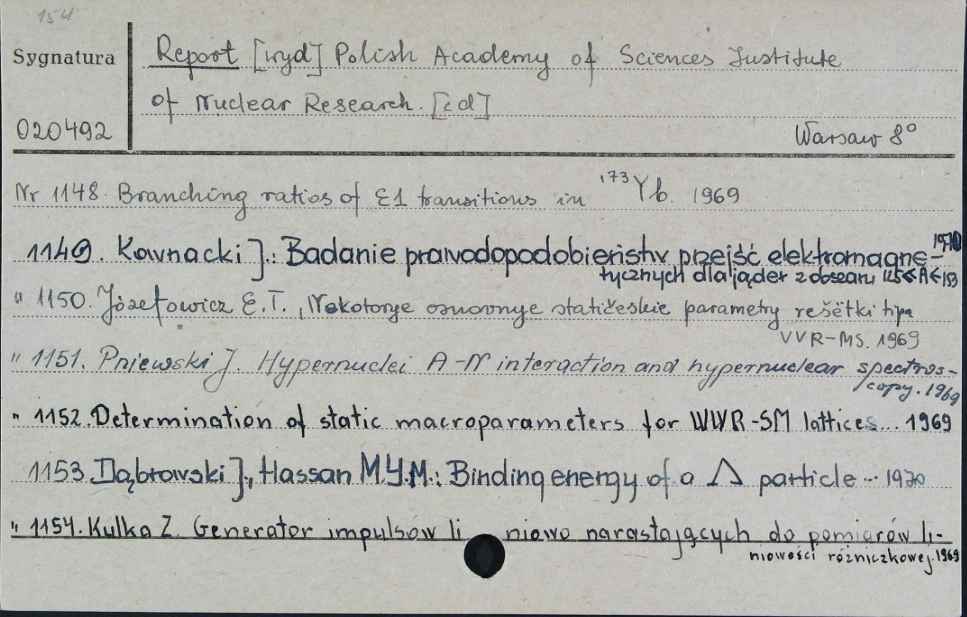 154
Sygnatura
Report [wyd] Polish Academy of Sciences Institute
of Nuclear Research. [cd]
020492
Warsaw 8°
Nr 1148. Branching ratios of E1 transitions in ¹⁷³Yb. 1969
1149. Kownacki J.: Badanie prawdopodobieństw przejść elektromagne- 1970
tycznych dla jąder z obszaru 125≤A≤153
" 1150. Józefowicz E.T., Nekotorye osnovnye statičeskie parametry rešëtki tipa
VVR-MS. 1969
" 1151. Pniewski J. Hypernuclei Λ-N interaction and hypernuclear spectros-
copy. 1969
" 1152. Determination of static macroparameters for WWR-SM lattices... 1969
1153 Dąbrowski J., Hassan M.Y.M.: Binding energy of a Λ particle... 1970
" 1154. Kulka Z. Generator impulsów li niowo narastających do pomiarów li-
niowości różniczkowej. 1969